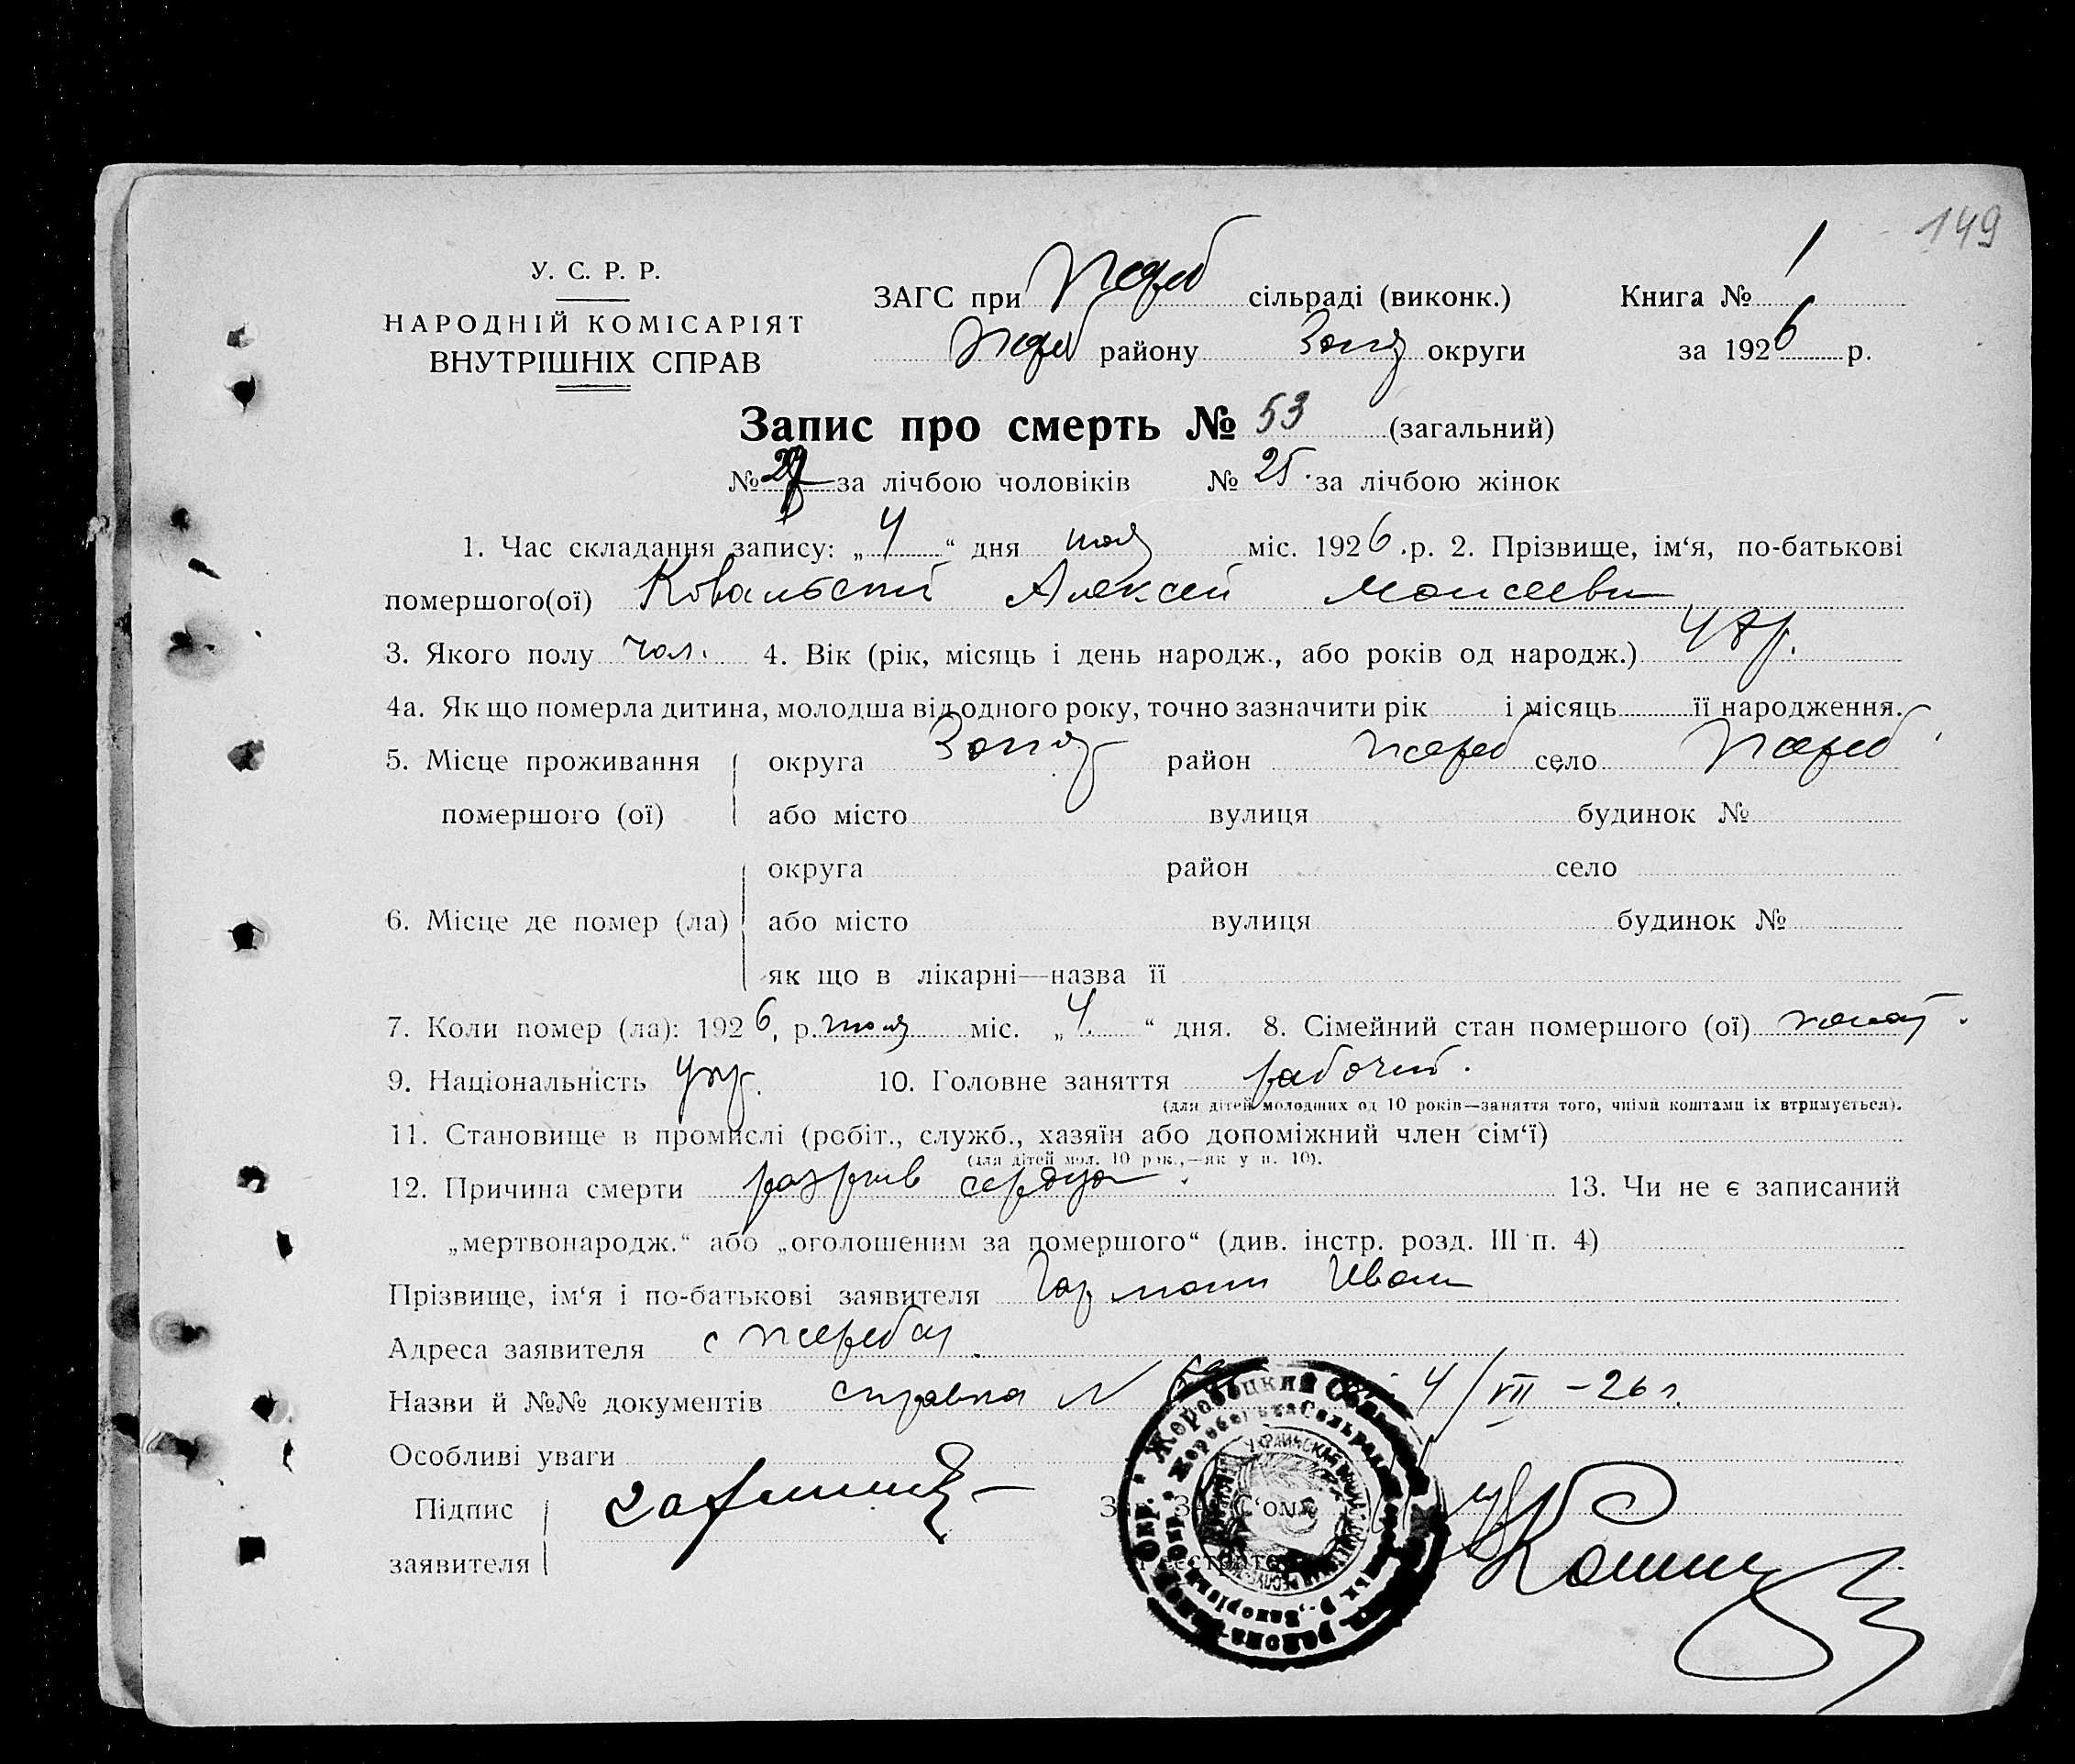 149
У. С. Р. Р.
НАРОДНІЙ КОМІСАРІЯТ
ВНУТРІШНІХ СПРАВ
ЗАГС при Жереб сільраді (виконк.) Книга № 1
Жереб району Запор округи за 1926 р.
Запис про смерть № 53 (загальний)
№ за лічбою чоловіків № 25. за лічбою жінок
1. Час складання запису: „4“ дня июля міс. 1926 р. 2. Прізвище, ім‘я, по-батькові
помершого(ої) Ковальский Алексей Моисеевич
3. Якого полу чол. 4. Вік (рік, місяць і день народж., або років од народж.)
4а. Як що померла дитина, молодша від одного року, точно зазначити рік і місяць її народження.
5. Місце проживання округа Запор район Жереб село Жереб
помершого (ої) або місто вулиця будинок №
округа район село
6. Місце де помер (ла) або місто вулиця будинок №
як що в лікарні—назва її
7. Коли помер (ла): 1926, р. июля міс. „4.“ дня. 8. Сімейний стан помершого (ої) женат.
9. Національність Укр. 10. Головне заняття рабочий.
(для дітей молодших од 10 років—заняття того, чиїми коштами їх втримується).
11. Становище в промислі (робіт., служб., хазяїн або допоміжний член сім‘ї)
(для дітей мол. 10 рок.,—як у п. 10).
12. Причина смерти разрыв сердца. 13. Чи не є записаний
„мертвонародж.“ або „оголошеним за помершого“ (див. інстр. розд. III п. 4)
Прізвище, ім‘я і по-батькові заявителя Иван
Адреса заявителя с Жеребец.
Назви й №№ документів справка № 4/VII-26 г.
Особливі уваги
Підпис
заявителя
Зав. ЗАГС‘ом